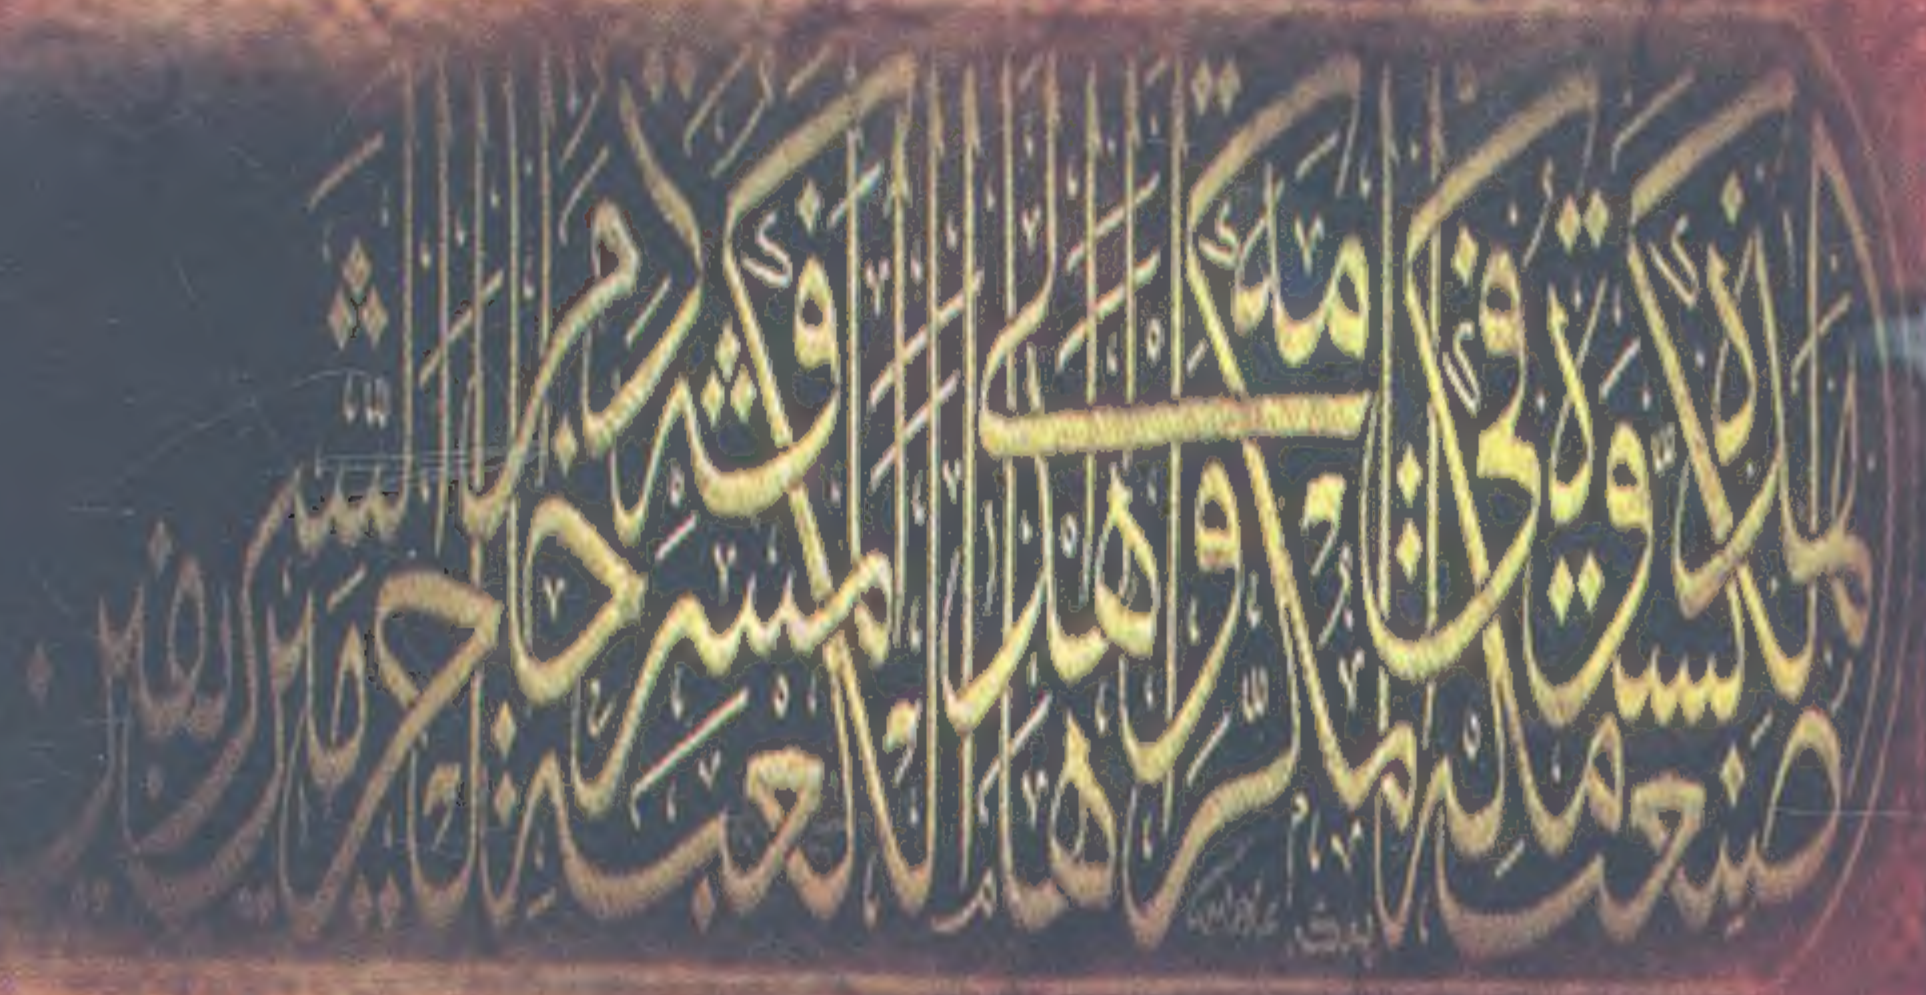 صنعت هذه الكسوة في مكة المكرمة وأهداها إلى الكعبة المشرفة خادم الحرمين الشريفين